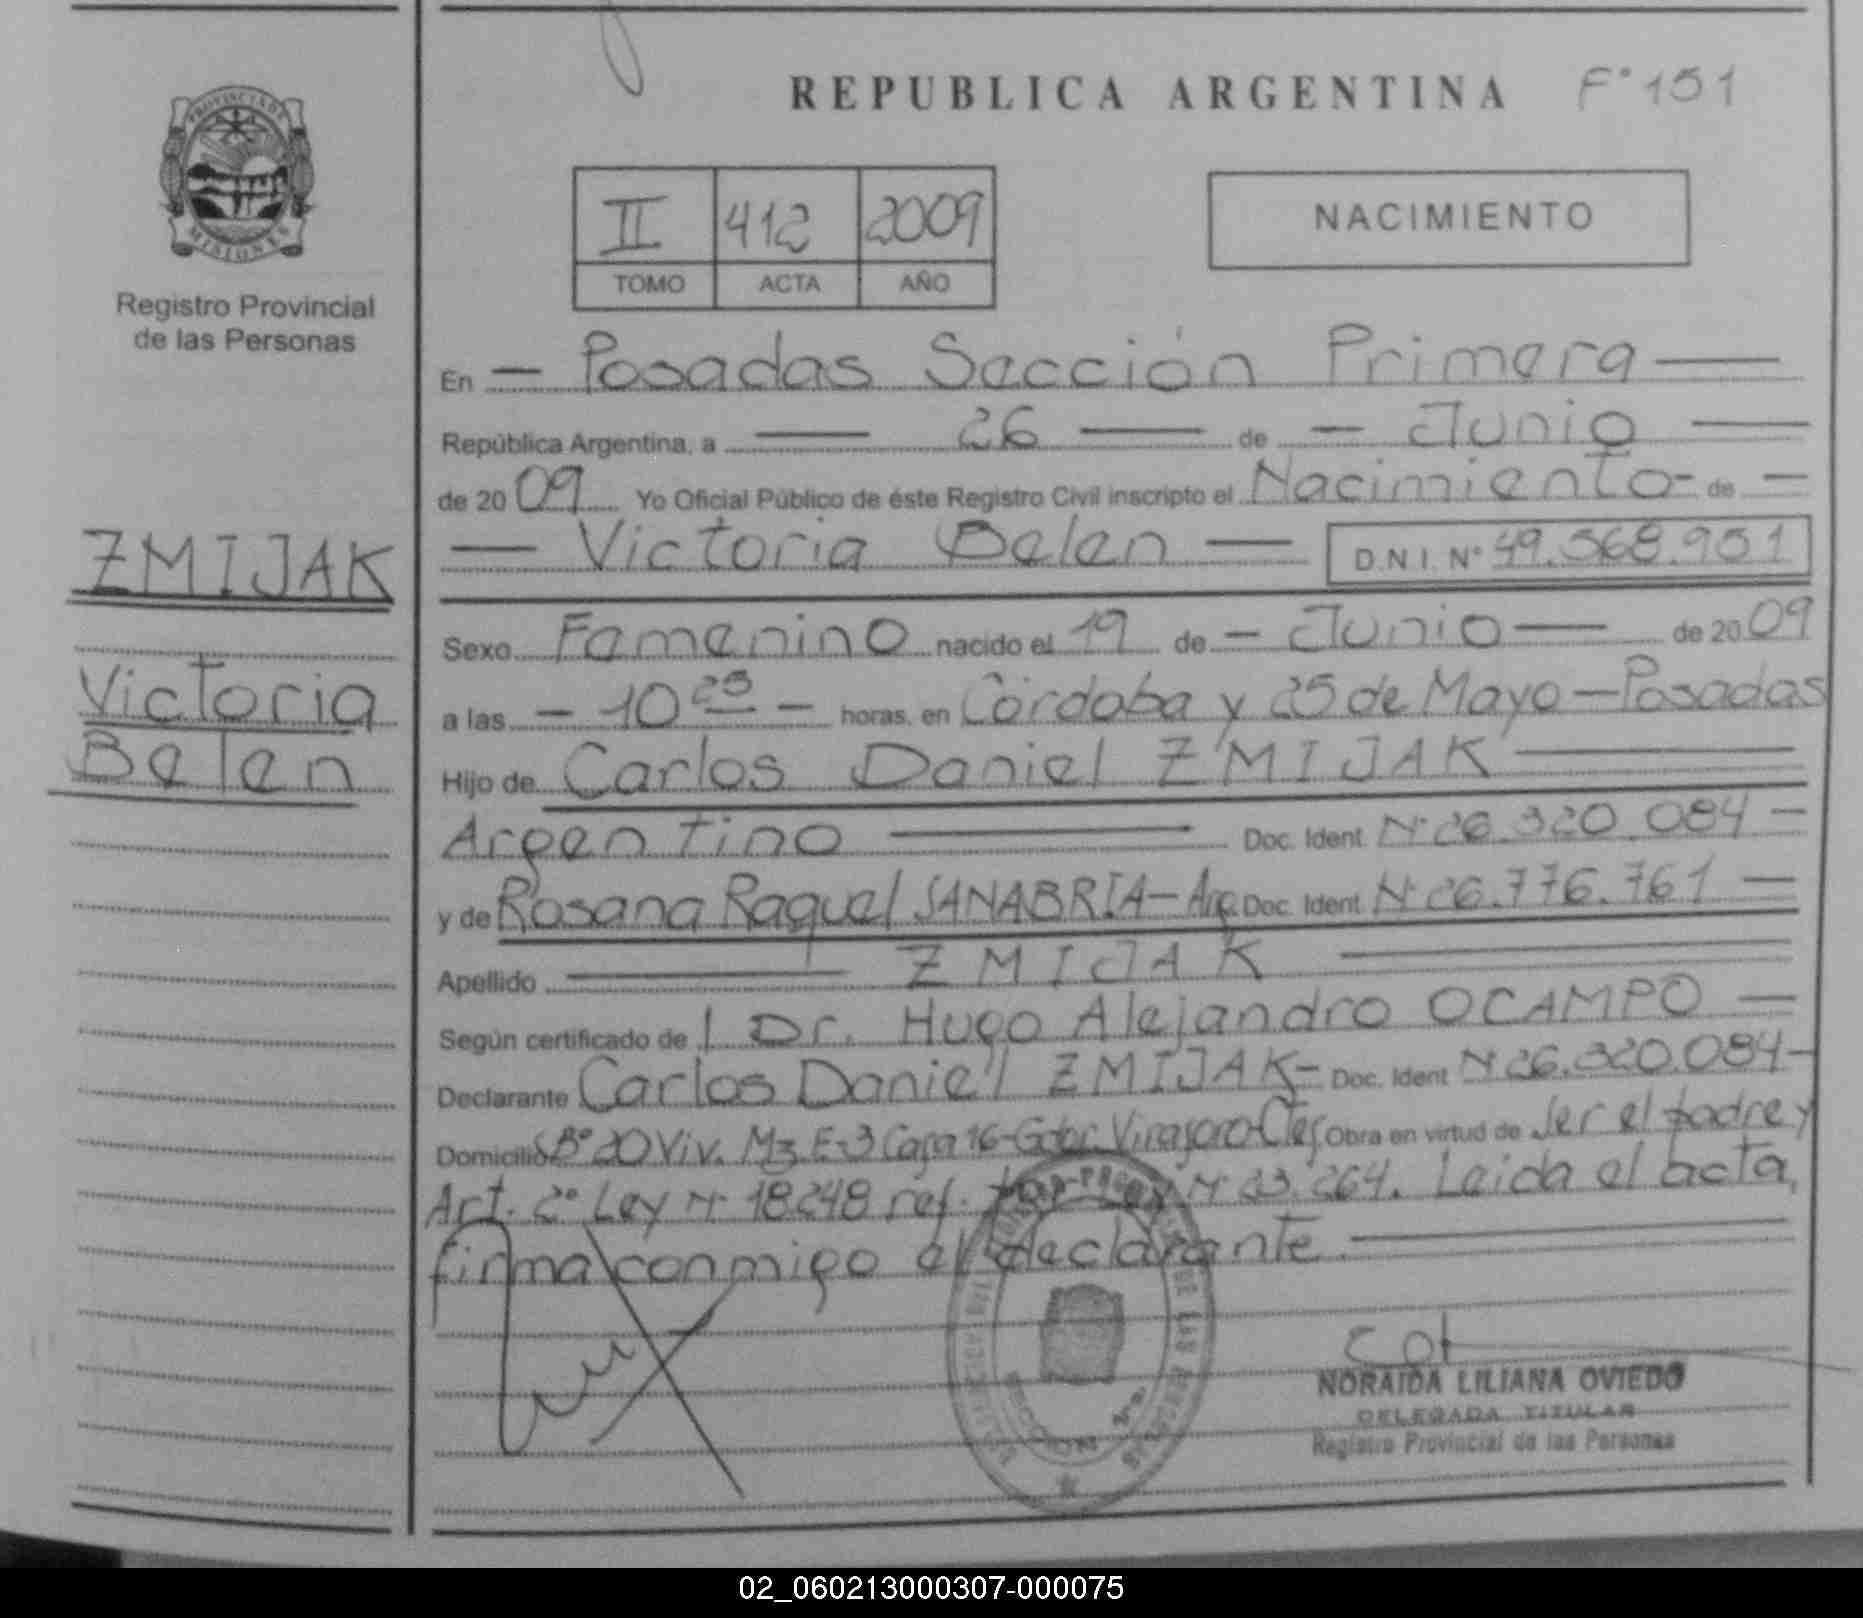 REPUBLICA ARGENTINA F° 151
PROVINCIA DE MISIONES
Registro Provincial
de las Personas
II 412 2009
TOMO ACTA AÑO
NACIMIENTO
En — Posadas Sección Primera —
República Argentina, a — 26 — de — Junio —
de 2009 Yo Oficial Público de éste Registro Civil inscripto el Nacimiento - de —
— Victoria Belen — D.N.I. N° 49.568.951
ZMIJAK
Victoria
Belen
Sexo Femenino nacido el 19 de — Junio — de 2009
a las — 10 25 — horas, en Córdoba y 25 de Mayo — Posadas
Hijo de Carlos Daniel ZMIJAK —
Argentino — Doc. Ident. N° 26.320.084 —
y de Rosana Raquel SANABRIA — Arg. Doc. Ident. N° 26.776.761 —
Apellido — ZMIJAK —
Según certificado de l Dr. Hugo Alejandro OCAMPO —
Declarante Carlos Daniel ZMIJAK - Doc. Ident N° 26.320.084 -
Domicilio B° 20 Viv. Mz E-3 Casa 16 - Gdor. Virasoro - Ctes. Obra en virtud de ser el padre y
Art. 2° Ley N° 18248 ref. por Ley N° 23.264. Leida el acta,
firma conmigo el declarante. —
NORAIDA LILIANA OVIEDO
DELEGADA TITULAR
Registro Provincial de las Personas
02_060213000307-000075